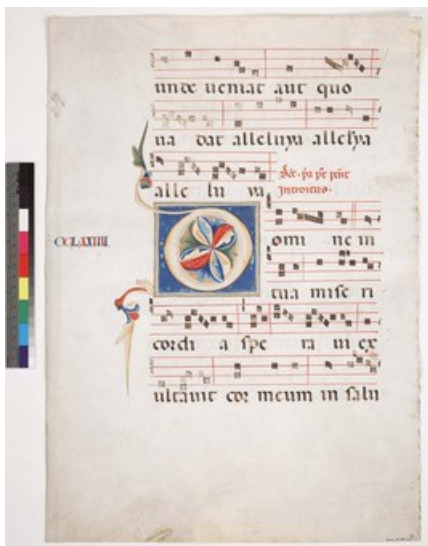 unde ueniat aut quo
ua dat alleluya allelya
alle lu ya
introitus.
CCLXIIII
D omi ne in
tua mise ri
cordi a spe ra ui ex
ultauit cor meum in salu